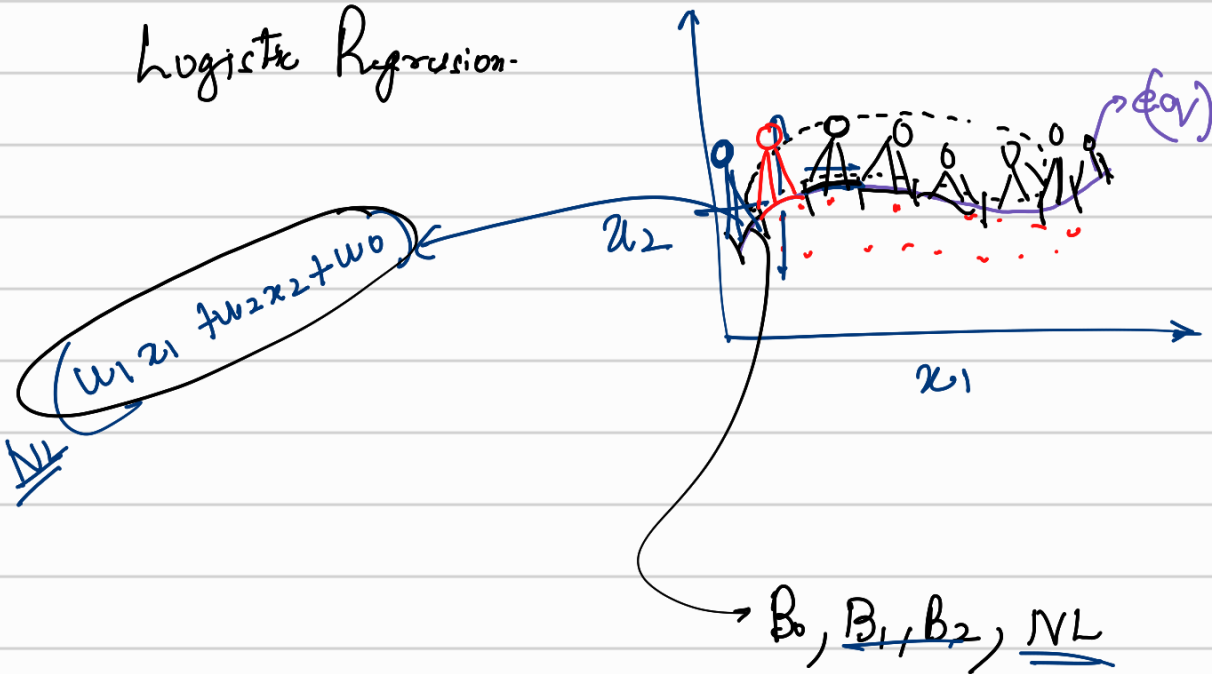 Logistic Regression
x2
w1 x1 + w2 x2 + w0
NL
x1
B0, B1, B2, NL